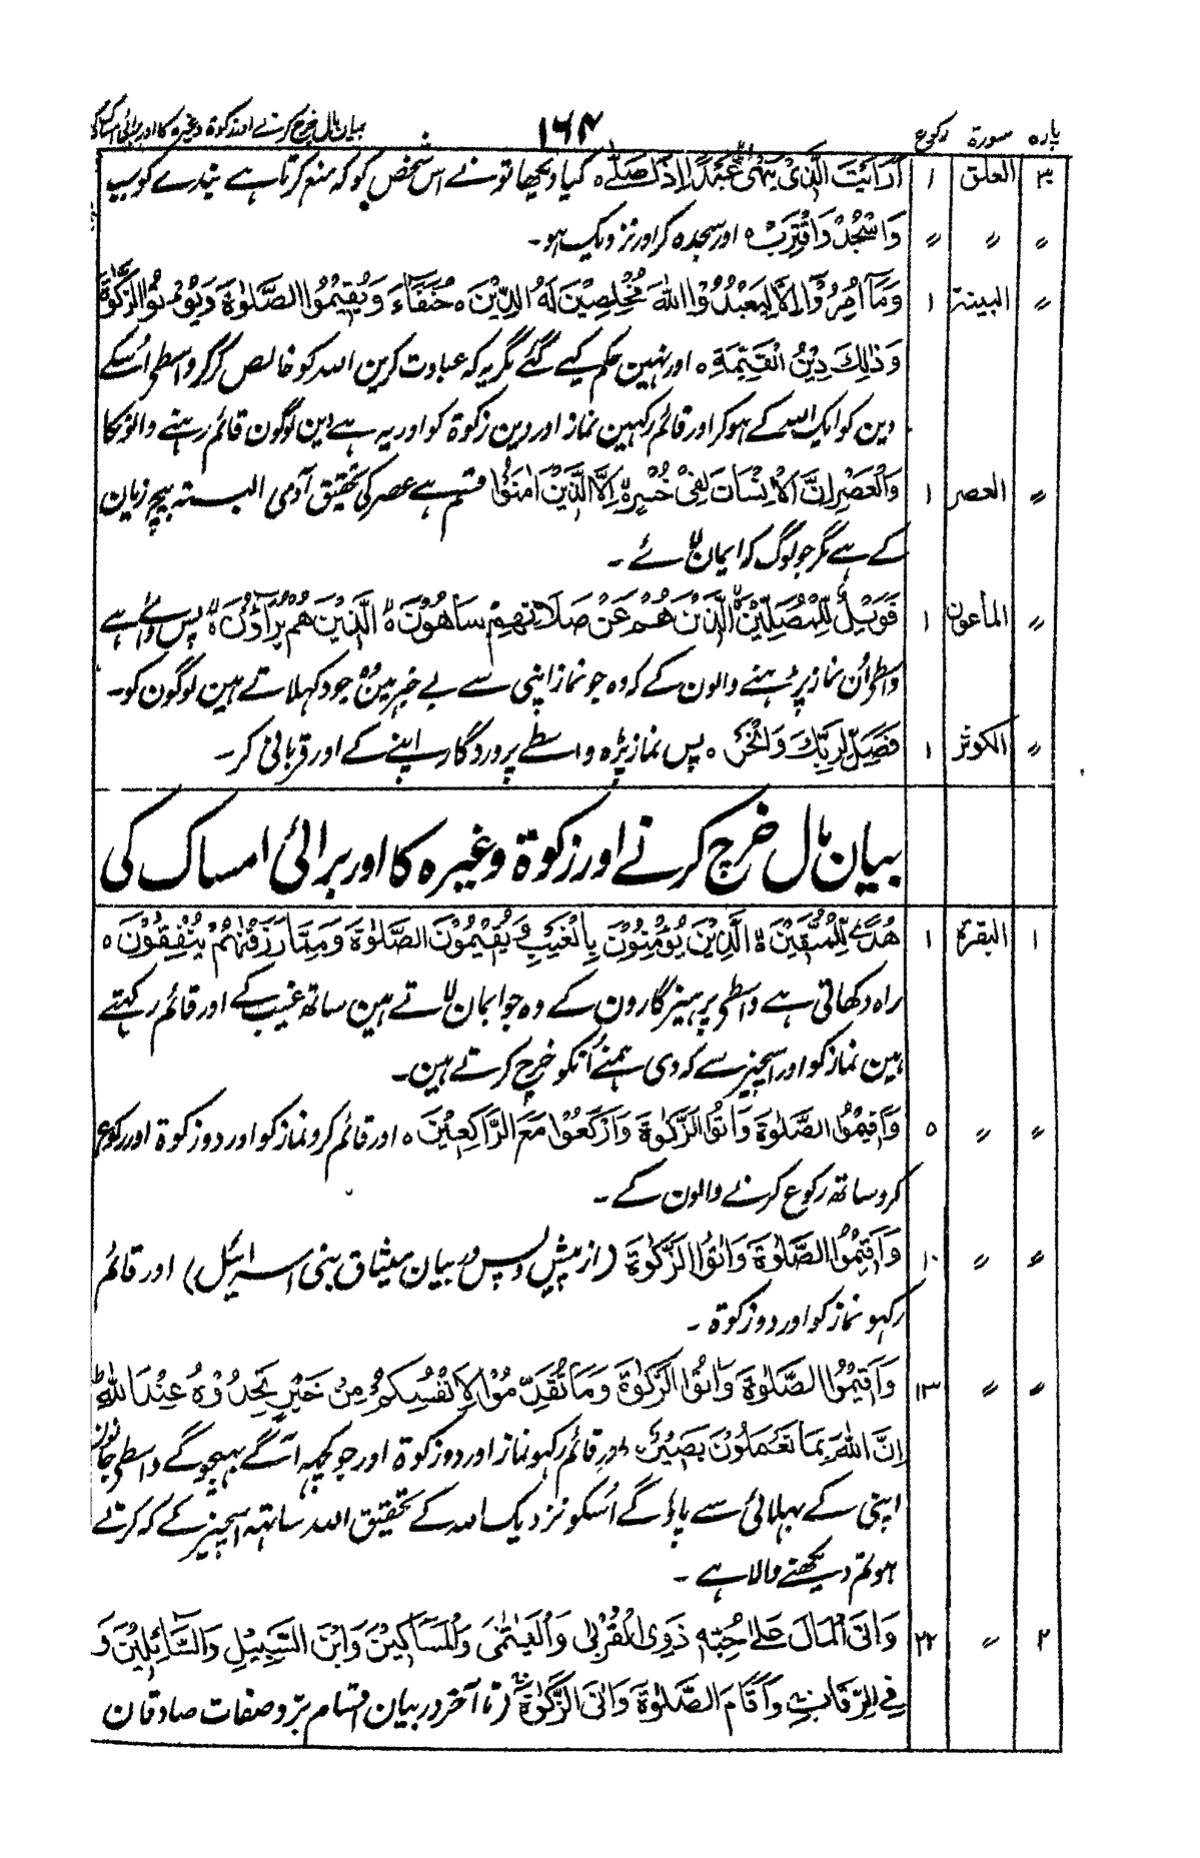 پارہ سورۃ رکوع ۱۶۴ بیان مال خرچ کرنے اور زکوۃ وغیرہ کا اور برائی امساک کی
۳۰ العلق ۱ اَرَاَیْتَ الَّذِیْ یَنْہٰی عَبْدًا اِذَا صَلّٰے ہ کیا دیکھا تونے اس شخص کو کہ منع کرتا ہے بندے کو جب
〃 〃 〃 وَاسْجُدْ وَاقْتَرِبْ ہ اور سجدہ کر اور نزدیک ہو۔
〃 البینۃ ۱ وَمَآ اُمِرُوْٓا اِلَّا لِیَعْبُدُوا اللّٰہَ مُخْلِصِیْنَ لَہُ الدِّیْنَ ہ حُنَفَآءَ وَیُقِیْمُوا الصَّلٰوۃَ وَیُؤْتُوا الزَّکٰوۃَ
وَذٰلِکَ دِیْنُ الْقَیِّمَۃِ ہ اور نہین حکم کیے گئے مگر یہ کہ عبادت کرین اللہ کو خالص کرکر واسطی اُسکے
دین کو ایک اللہ کے ہو کر اور قائم رکہین نماز اور دین زکوۃ کو اور یہ ہے دین لوگون قائم رہنے والونکا
〃 العصر ۱ وَالْعَصْرِ اِنَّ الْاِنْسَانَ لَفِیْ خُسْرٍ اِلَّا الَّذِیْنَ اٰمَنُوْا قسم ہے عصر کی تحقیق آدمی البتہ بیچ زیان
کے ہے مگر جو لوگ کہ ایمان لائے۔
〃 الماعون ۱ فَوَیْلٌ لِّلْمُصَلِّیْنَ الَّذِیْنَ ھُمْ عَنْ صَلَاتِھِمْ سَاھُوْنَ ہ الَّذِیْنَ ھُمْ یُرَآؤُنَ ہ پس وائے ہے
واسطی اُن نماز پڑہنے والون کے کہ وہ جو نماز اپنی سے بے خبر ہین جو دکہلاتے ہین لوگون کو۔
〃 الکوثر ۱ فَصَلِّ لِرَبِّکَ وَانْحَرْ ہ پس نماز پڑہ واسطے پروردگار اپنے کے اور قربانی کر۔
بیان مال خرچ کرنے اور زکوۃ وغیرہ کا اور برائی امساک کی
۱ البقرۃ ۱ ھُدًی لِّلْمُتَّقِیْنَ ہ الَّذِیْنَ یُؤْمِنُوْنَ بِالْغَیْبِ وَیُقِیْمُوْنَ الصَّلٰوۃَ وَمِمَّا رَزَقْنٰھُمْ یُنْفِقُوْنَ ہ
راہ دکھاتی ہے واسطی پرہیزگارون کے وہ جو ایمان لاتے ہین ساتھ غیب کے اور قائم رکہتے
ہین نماز کو اور اسچیز سے کہ دی ہمنے اُنکو خرچ کرتے ہین۔
〃 〃 ۵ وَاَقِیْمُوا الصَّلٰوۃَ وَاٰتُوا الزَّکٰوۃَ وَارْکَعُوْا مَعَ الرَّاکِعِیْنَ ہ اور قائم کرو نماز کو اور دو زکوۃ اور رکوع
کرو ساتھ رکوع کرنے والون کے۔
〃 〃 ۱۰ وَاَقِیْمُوا الصَّلٰوۃَ وَاٰتُوا الزَّکٰوۃَ (از پیش و پس در بیان میثاق بنی اسرائیل) اور قائم
رکہو نماز کو اور دو زکوۃ۔
〃 〃 ۱۳ وَاَقِیْمُوا الصَّلٰوۃَ وَاٰتُوا الزَّکٰوۃَ وَمَا تُقَدِّمُوْا لِاَنْفُسِکُمْ مِنْ خَیْرٍ تَجِدُوْہُ عِنْدَ اللّٰہِ
اِنَّ اللّٰہَ بِمَا تَعْمَلُوْنَ بَصِیْرٌ۔ اور قائم رکہو نماز اور دو زکوۃ اور جو کچہہ آگے بہیجوگے واسطی جانون
اپنی کے بہلائی سے پاؤگے اُسکو نزدیک اللہ کے تحقیق اللہ ساتہہ اسچیز کے کہ کرتے
ہو تم دیکھنے والا ہے۔
۲ 〃 ۲۲ وَاٰتَی الْمَالَ عَلٰی حُبِّہٖ ذَوِی الْقُرْبٰی وَالْیَتٰمٰی وَالْمَسَاکِیْنَ وَابْنَ السَّبِیْلِ وَالسَّآئِلِیْنَ وَ
فِی الرِّقَابِ وَاَقَامَ الصَّلٰوۃَ وَاٰتَی الزَّکٰوۃَ (تا آخر در بیان اقسام بِرّ و صفات صادقان